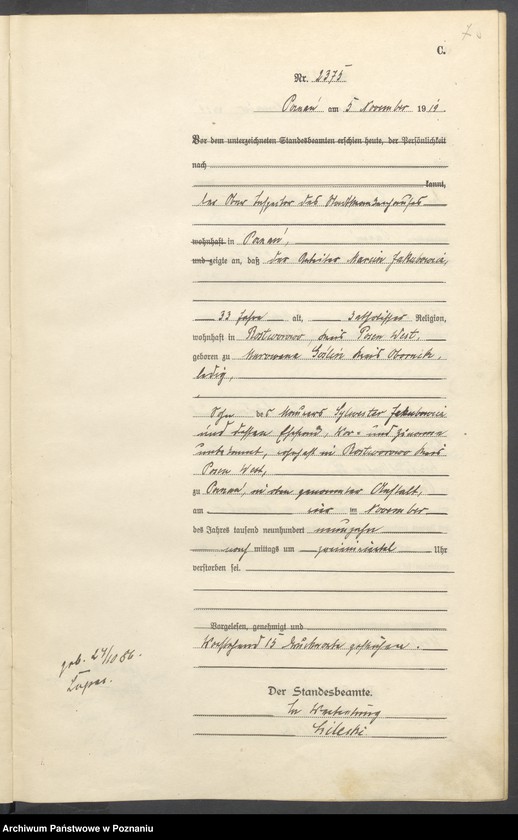 C.
Nr. 2375
Poznań am 5 November 1919
Vor dem unterzeichneten Standesbeamten erschien heute, der Persönlichkeit
nach
kannt,
der Ober Inspector des Stadtkrankenhauses
wohnhaft in Poznań,
und zeigte an, daß der Arbeiter Marcin Jakubowicz,
33 Jahre alt, katholischer Religion,
wohnhaft in Rostworowo Kreis Posen West,
geboren zu Murowana Goślin Kreis Obornik,
ledig,
Sohn des Maurers Sylwester Jakubowicz
und dessen Ehefrau, Vor- und Zuname
unbekannt, wohnhaft in Rostworowo Kreis
Posen West,
zu Poznań, in der genannten Anstalt,
am vier im November
des Jahres tausend neunhundert neunzehn
nach mittags um Uhr
verstorben sei.
Vorgelesen, genehmigt und
Vorstehend 13 Druckworte gestrichen.
Der Standesbeamte.
In Vertretung
geb. 24/10 86.
Archiwum Państwowe w Poznaniu